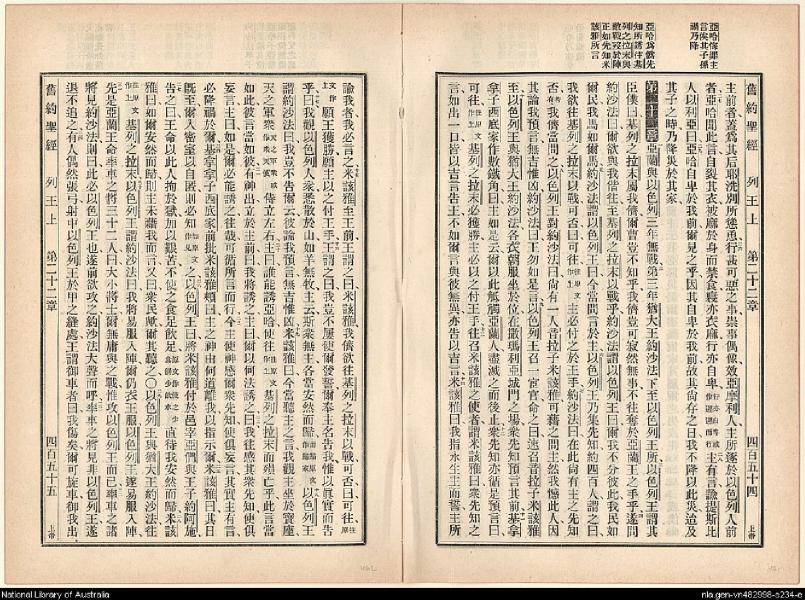 亞哈悔罪主
言俟其子孫
乃降
亞哈為僞先
知所誘往基
列之拉末與
敵戰歿於陣
正如先知米
該雅所言
舊約聖經 列王上 第二十二章 四百五十四 上帝
主前者蓋為其后耶洗別所慫惥行甚可惡之事崇事偶像效亞摩利人主所逐於以色列人前
者亞哈聞此言自裂其衣被麻於身而禁食寢亦衣麻行亦自卑 主有言諭提斯比
人以利亞曰亞哈自卑於我前爾見之乎因其自卑於我前故其尚存之日我不降以此災迨及
其子之時乃降災於其家
第二十二章 亞蘭與以色列三年無戰第三年猶大王約沙法下至以色列王所以色列王謂其
臣僕曰基列之拉末屬我儕爾曹豈不知乎我儕豈可寂然無事不往奪於亞蘭王之手乎遂問
約沙法曰爾欲與我偕往至基列之拉末以戰乎約沙法謂以色列王曰爾我不分彼此我民如
爾民我馬如爾馬約沙法謂以色列王曰今當問言於主以色列王乃集先知約四百人謂之曰
我欲往基列之拉末以戰可否曰可往 主必付之於王手約沙法曰在此尚有主之先知
否有我儕當問之以色列王對約沙法曰尚有一人音拉子米該雅可藉之問主然我憾此人因
其論我預言無吉惟凶約沙法曰王勿如是言以色列王召一宦官命之曰速召音拉子米該雅
至以色列王與猶大王約沙法各衣朝服坐於位在撒瑪利亞城門之場衆先知預言其前基拿
拿子西底家作數鐵角曰主如是云爾以此觝觸亞蘭人盡滅之而後止衆先知亦循是預言曰
可往 基列之拉末必獲勝主必以之付王手往召米該雅之使者謂米該雅曰衆先知之
言如出一口皆以吉言告王不如爾言與彼無異亦告以吉言米該雅曰我指永生主而誓主所
諭我者我必言之米該雅至王前王謂之曰米該雅我儕欲往基列之拉末以戰可否曰可往
願王獲勝願主以之付王手王謂之曰我豈不屢使爾發誓爾奉主名告我惟以眞實而告
乎曰我觀以色列人衆悉散於山如羊無牧主云斯衆無主各當安然而歸 以色列王
謂約沙法曰我豈不告爾云彼論我預言無吉惟凶米該雅曰今當聽主之言我觀主坐於寶座
天之軍衆 侍立左右主曰誰能誘亞哈使往 基列之拉末而殞亡乎此言當
如此彼言當如彼有神出立於主前曰我將誘之主曰以何法誘之曰我往感其衆先知使俱
妄言主曰如是爾必能誘之往哉可循所言而行今主使神感爾衆先知使俱妄言其實主有言
必降禍於爾基拿拿子西底家前批米該雅頰曰主之神由何道離我以指示爾米該雅曰其日
爾旣至爾入密室以自匿則必知 以色列王曰將米該雅付於邑宰亞們與王子約阿施
告之曰王命以此人拘於獄加以艱苦不使之食足飲足 直待我安然而歸米該
雅曰如爾安然而歸則主未藉我而言又曰衆民歟爾其聽之○以色列王與猶大王約沙法往
基列之拉末以色列王謂約沙法曰我將易服入陣爾仍衣王服以色列王遂易服入陣
先是亞蘭王命率車之將三十二人曰大小將士爾無庸與之戰惟攻以色列王而已率車之諸
將見約沙法則曰此必以色列王也遂前欲攻之約沙法大聲而呼率車之將見非以色列王遂
退不追之有人偶然張弓射中以色列王於甲之縫處王謂御車者曰我傷矣爾可旋車御我出
舊約聖經 列王上 第二十二章 四百五十五 上帝
National Library of Australia
nla.gen-vn482998-s234-e